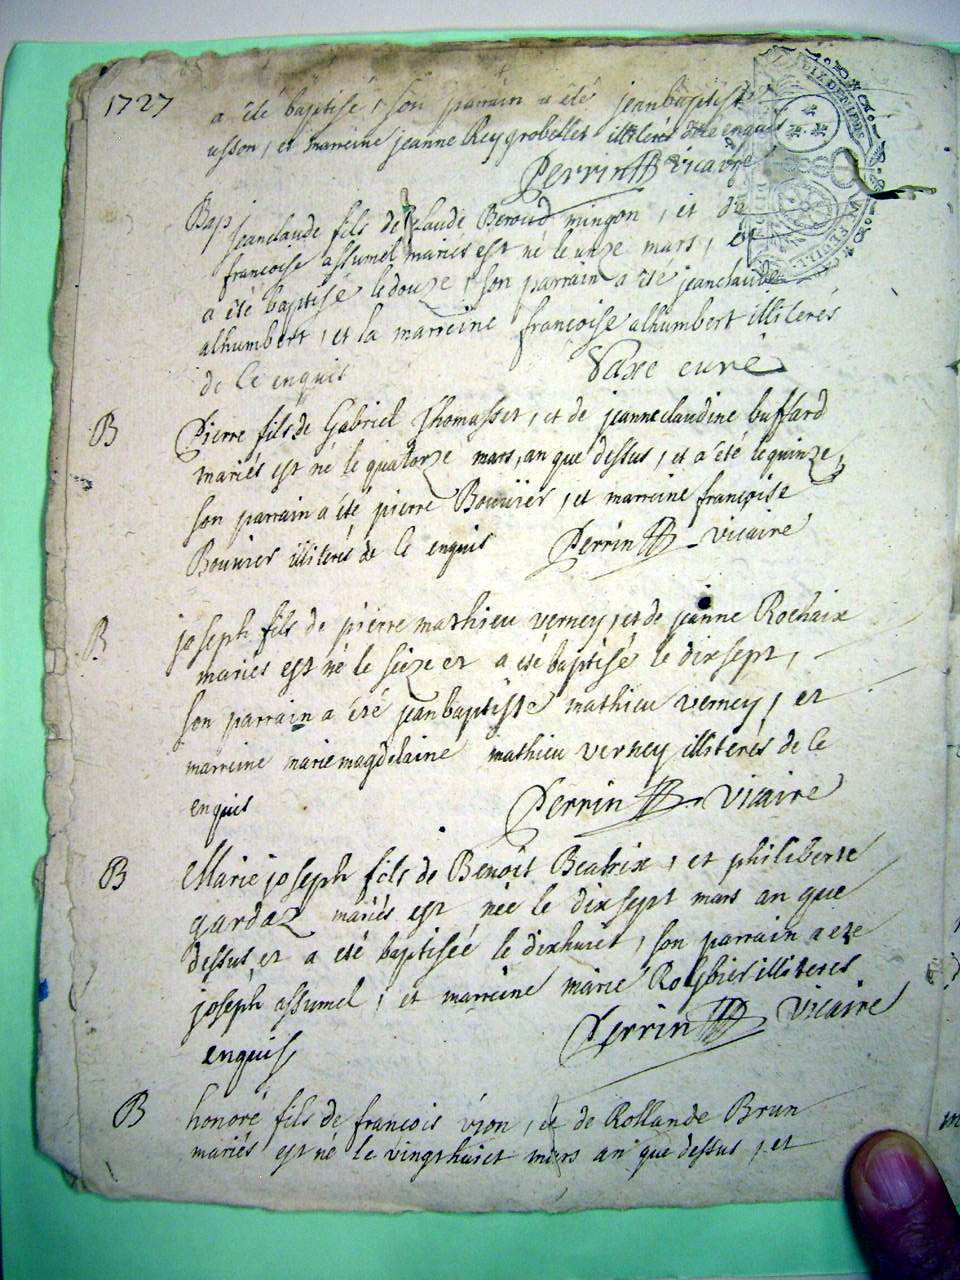 1727
a été baptisé, son parrain a été jeanbaptiste
usson, et marreine jeanne Reygrobellet illiterés de ce enquis
Perrin vicaire
Bap
jeanclaude fils de claude Beroud mingon, et de
françoise assumel mariés est né le unze mars, et
a été baptisé le douze, son parrain a été jeanclaude
alhumbert, et la marreine françoise alhumbert illiterés
de ce enquis
curé
B
Pierre fils de Gabriel Thomasset, et de jeanneclaudine buffard
mariés est né le quatorze mars, an que dessus, et a été le quinze,
son parrain a été pierre Bouvier, et marreine françoise
Bouvier illiterés de ce enquis Perrin vicaire
B
joseph fils de pierre mathieu verney, et de jeanne Rochaix
mariés est né le sèze et a été baptisé le dixsept,
son parrain a été jeanbaptiste mathieu verney, et
marreine mariemagdelaine mathieu verney illiterés de ce
enquis Perrin vicaire
B
Marie joseph fils de Benoit Beatrix, et philiberte
gardaz mariés est née le dixsept mars an que
dessus et a été baptiseé le dixhuict, son parrain a été
joseph assumel, et marreine marie illiteres
enquis Perrin vicaire
B
honoré fils de françois vion, et de Rollande Brun
mariés est né le vingthuict mars an que dessus, et